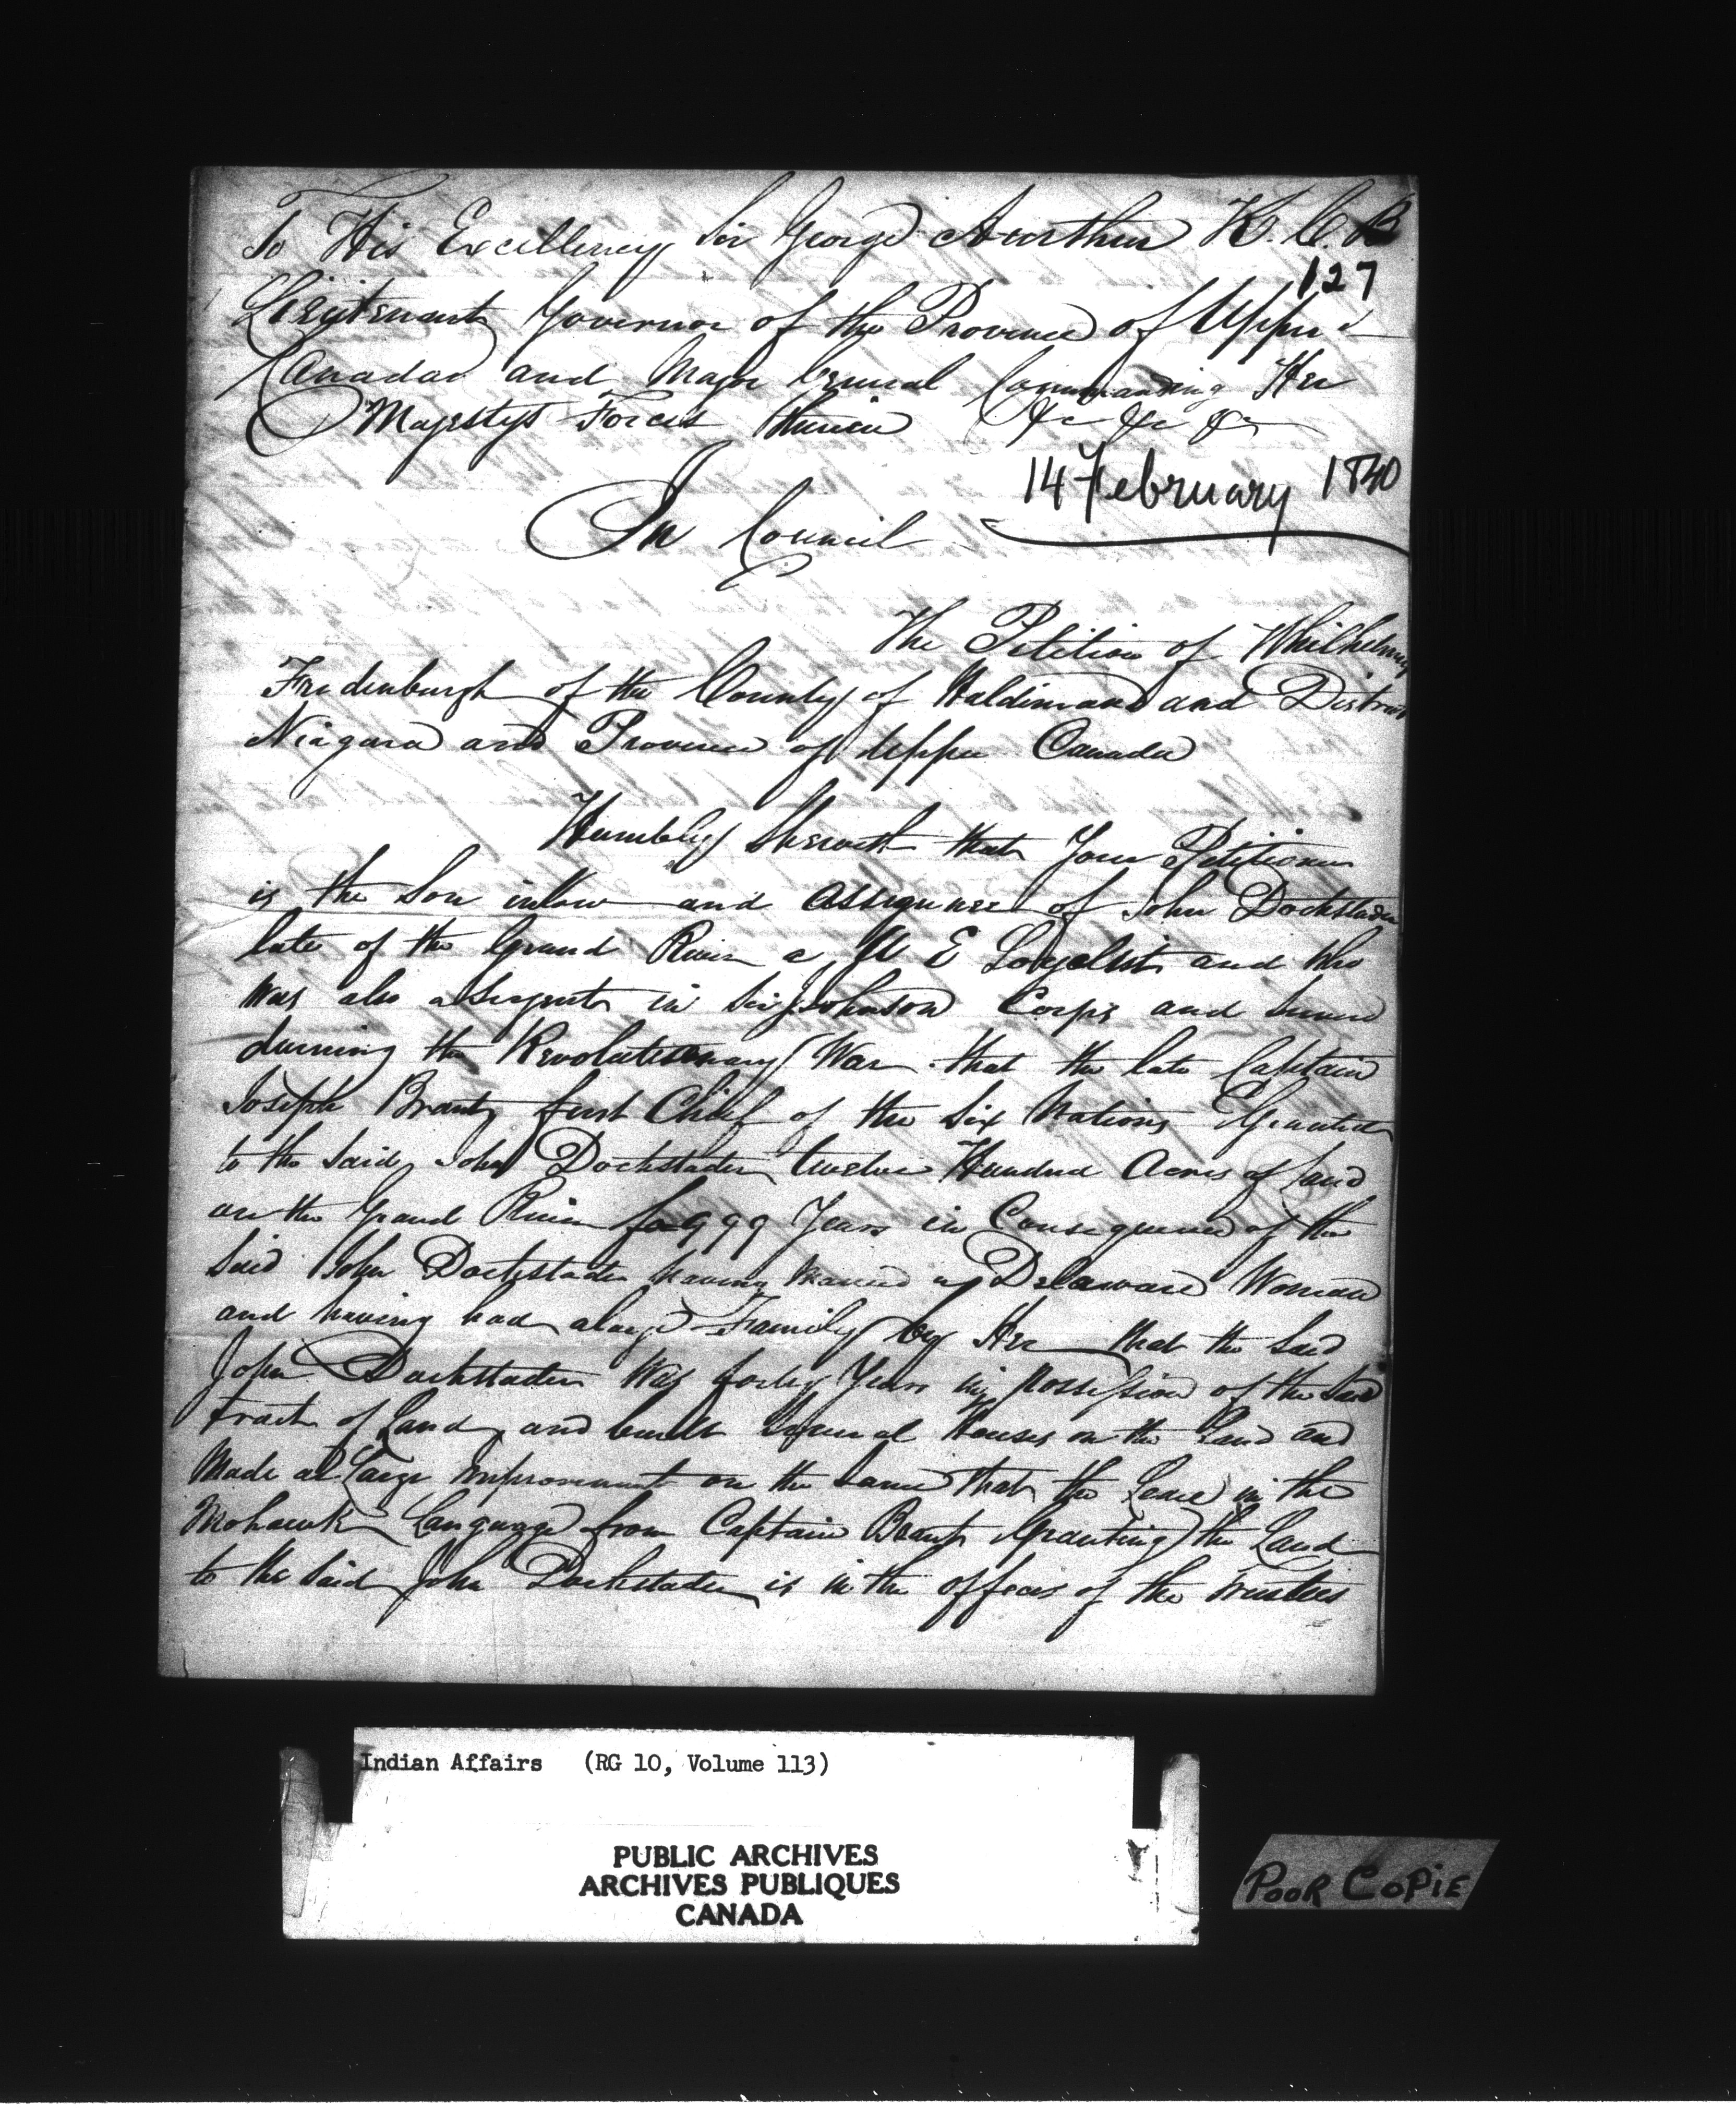 To His Excellency Sir George Aurthur K. C. B
127
Lieutenant Governor of the Province of Upper
Canada and Major General Commanding Her
Majestys Forces therein &c &c &c
14 February 1840
In Council
The Petition of Whilhelmus
Fredenburgh of the County of Haldimand and District
Niagara and Province of Upper Canada
Humbly Sheweth that Your Petitioner
is the Son inlaw and Assignee of John Dochstader
late of the Grand River a U E Loyalist and who
was also a Sergent in Sir Johnson Corps and Served
durning the Revolutionary War that the late Captain
Joseph Brant first Chief of the Six Nations Granted
to the Said John Dochstader twelve Hundred Acres of Land
on the Grand River for 999 Years in Consequence of the
Said John Dochstader having married a Delaware Woman
and having had a large Family by Her that the Said
John Dochstader Was forty Years in possession of the Said
tract of Land and built Several Houses on the Land and
Made a Large improvement on the Same That the Lease in the
Mohawk Language from Captain Brant Granting the Land
to the Said John Dochstader is in the offices of the Trustees
Indian Affairs (RG 10, Volume 113)
PUBLIC ARCHIVES
ARCHIVES PUBLIQUES
CANADA
POOR COPIE